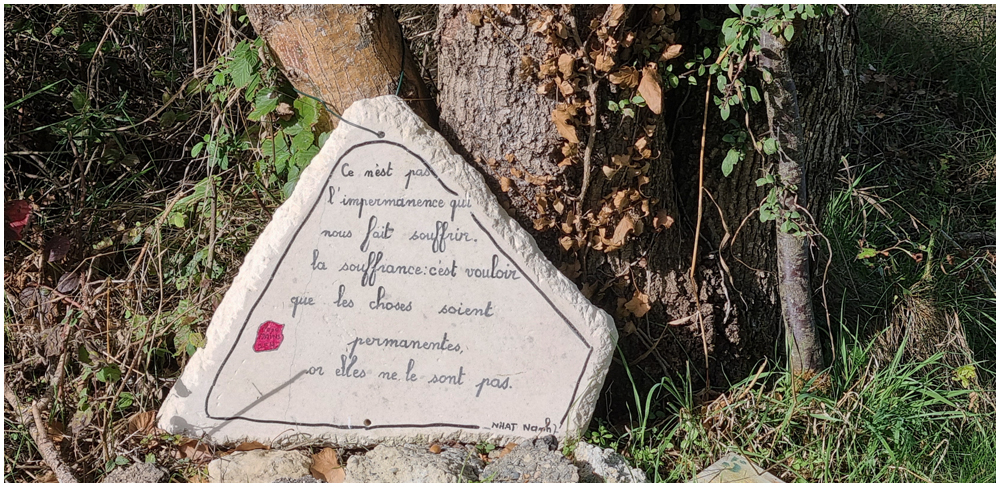 Ce n'est pas
l'impermanence qui
nous fait souffrir.
la souffrance: c'est vouloir
que les choses soient
permanentes,
or elles ne le sont pas.
NHAT Nanh